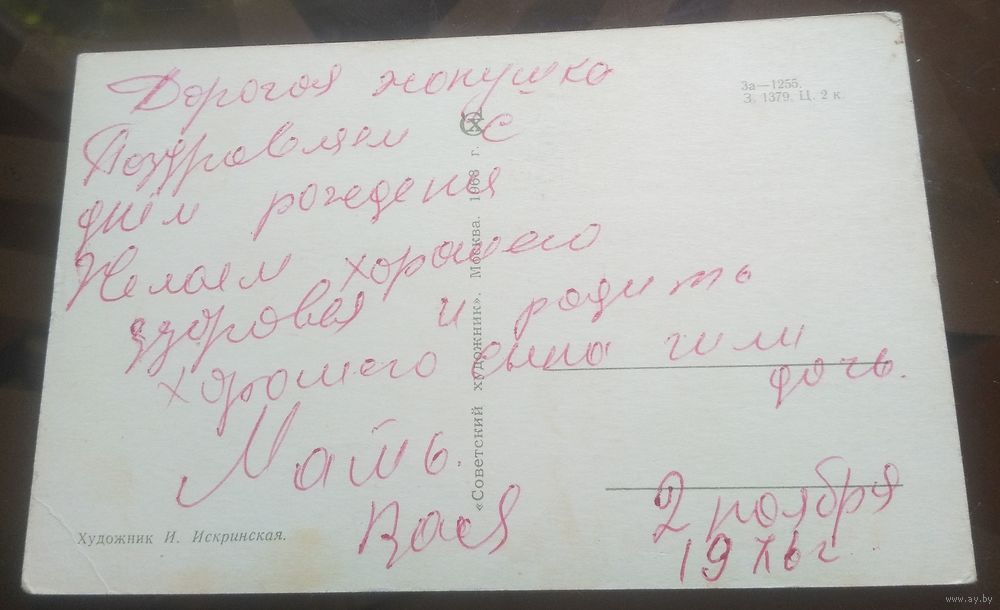 Дорогая жонушка
Поздровляем с
днём рождения
Желаем хорошего
здоровья и родить
хорошого сына или
дочь.
Мать.
Вася
2 ноября
19 г
За—1255.
З. 1379. Ц. 2 к.
«Советский художник». Москва. 1968 г.
Художник И. Искринская.
www.ay.by